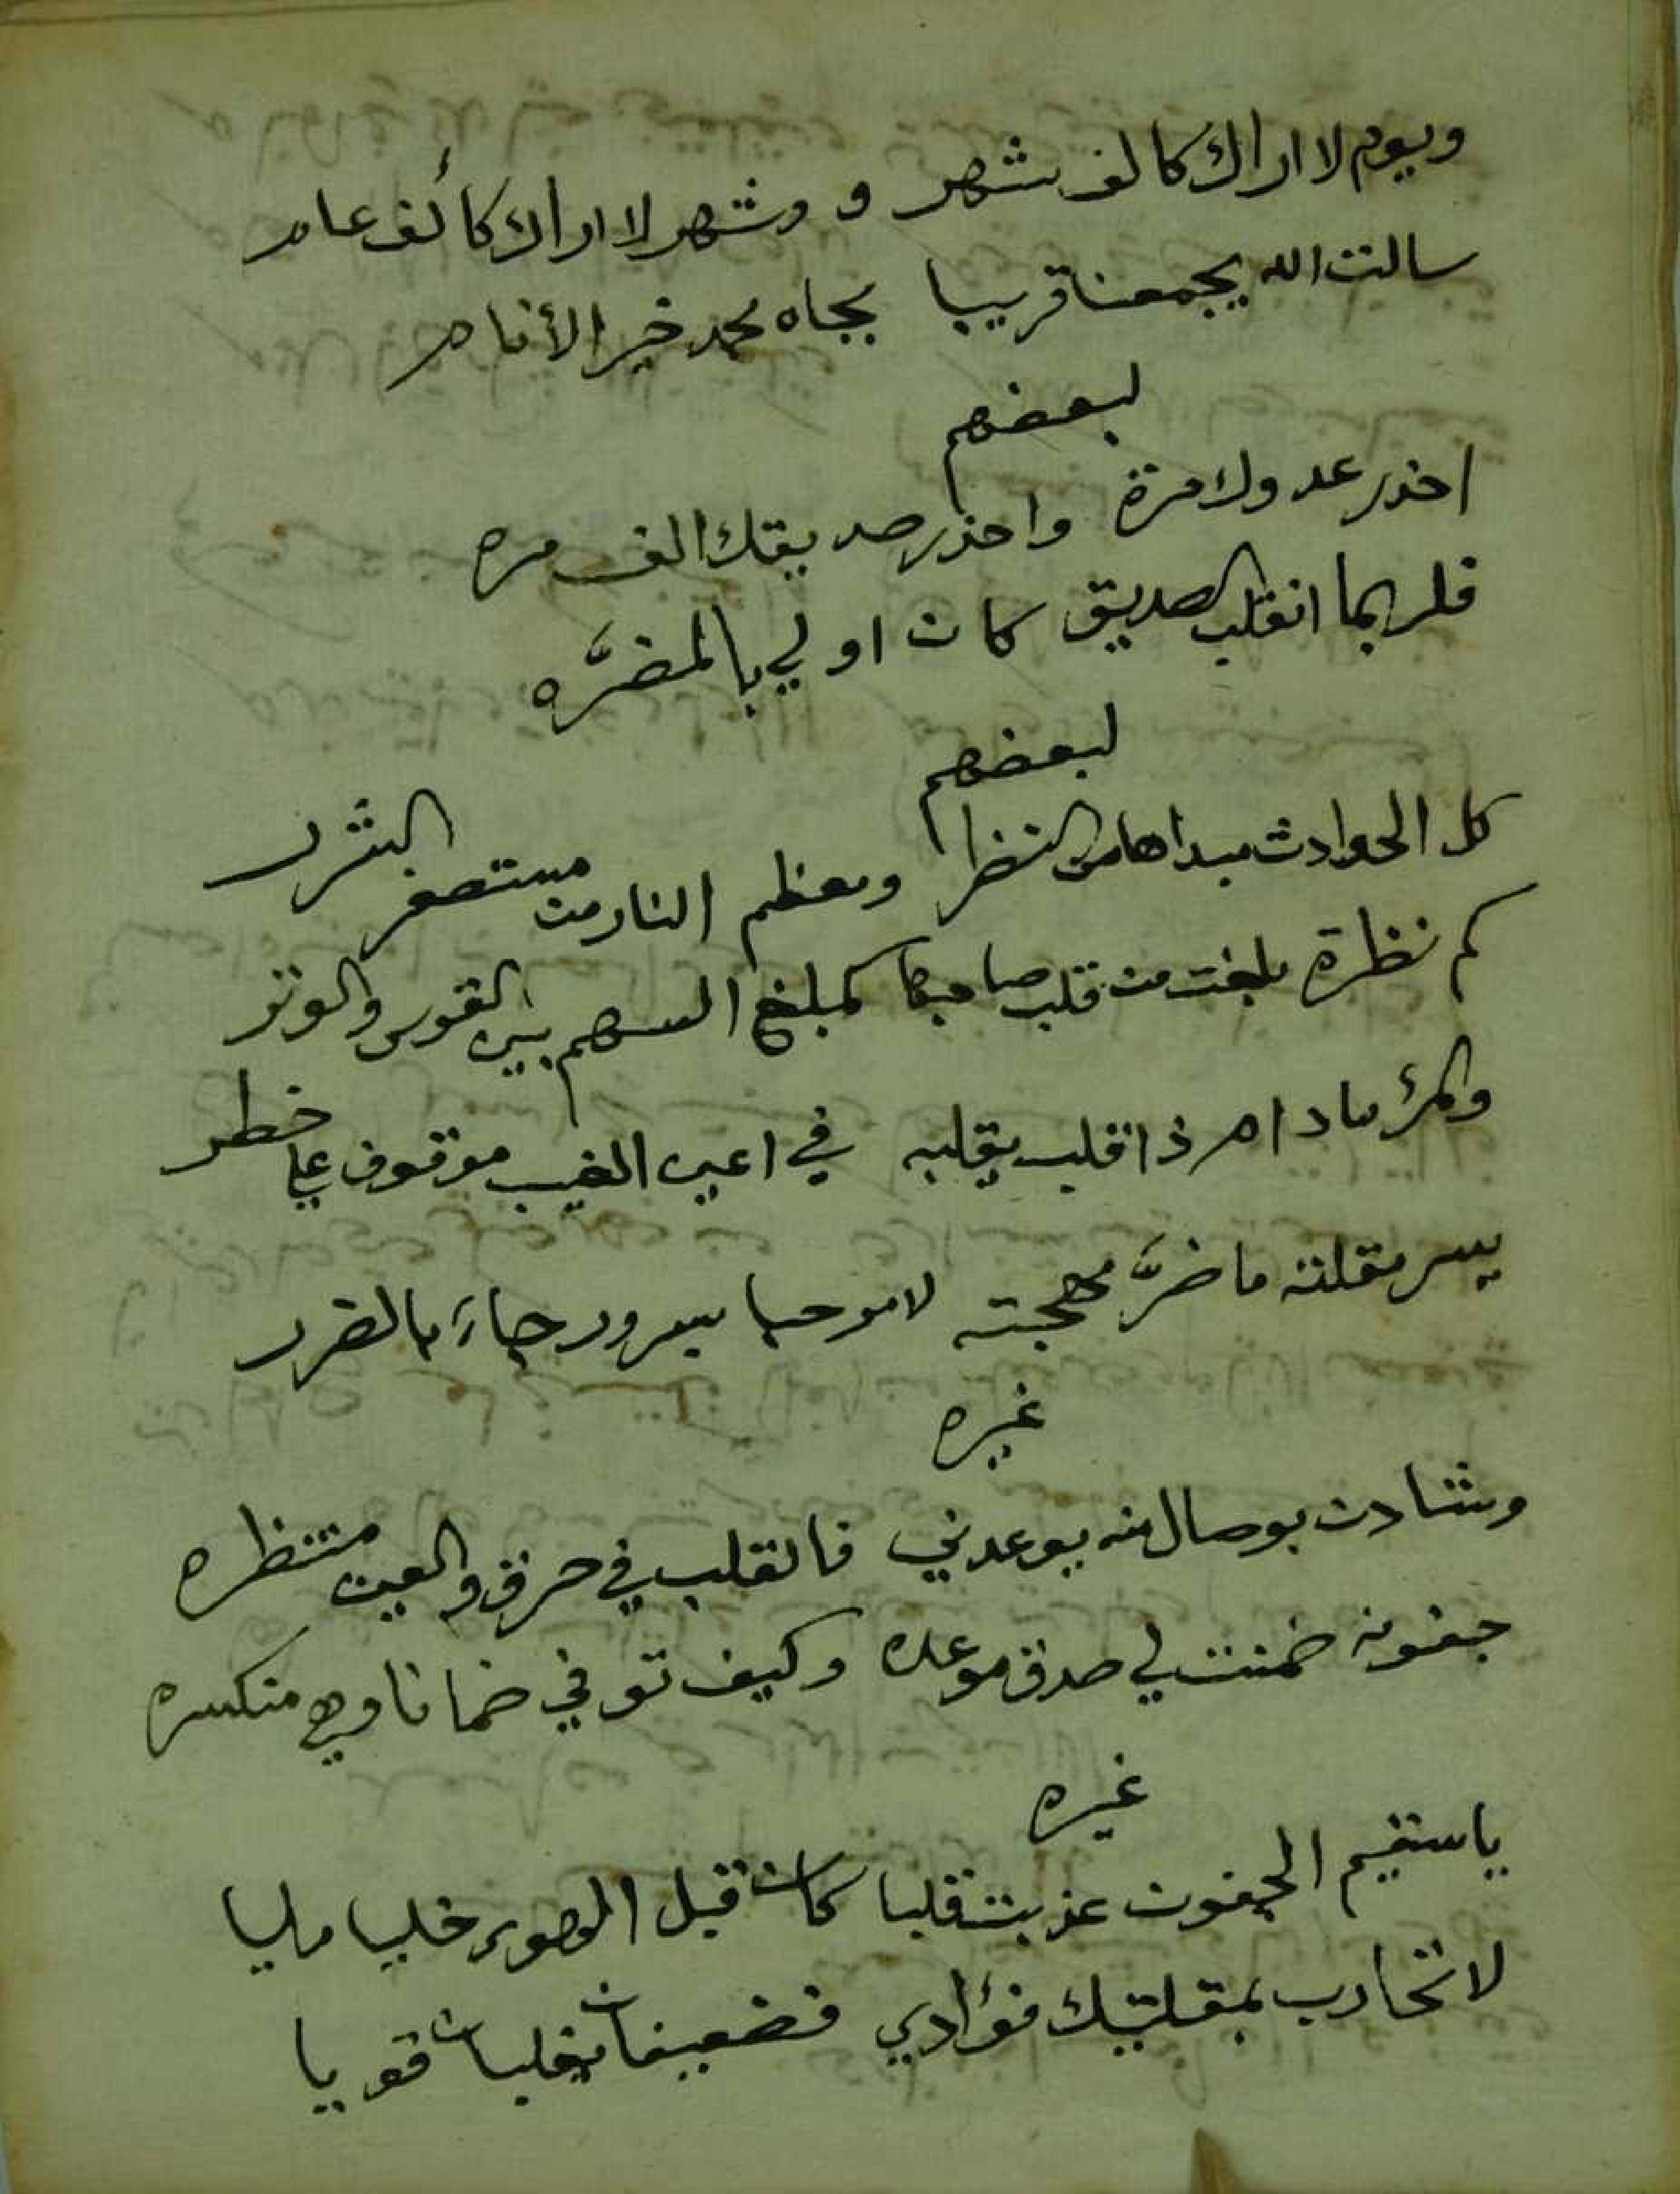 ويوم لا اراك كالف شهر و وشهر لا اراك كألف عام
سالت الله يجمعنا قريبا بجاه محمد خير الأنام
لبعضهم
احذر عدوك مرة واحذر صديقك الف مره
فلربما انقلب الصديق كان اولي بالمضرَّه
لبعضهم
كل الحوادث مبداها من النضر ومعظم النار من مستصغر الشرر
كم نظرة بلغت من قلب صاحبها كمبلغ السهم بين القوس والوتر
والمرئ مادام ذا قلب يقلبه في اعين الغيب موقوف علي خطر
يسر مقلته ما ضرَّ مهجته لا مرحبا بسرور جاء بالضرر
غيره
وشادن بوصال منه يوعدني فالقلب في حرق والعين منتظره
جفونه ضمنت لي صدق موعده وكيف توفي ضمانا وهي منكسره
غيره
يا سقيم الجفون عذبت قلبا كان قبل الهوي خليا مليا
لا تحارب بمقلتيك فؤادي فضعيفان يغلبان قويا